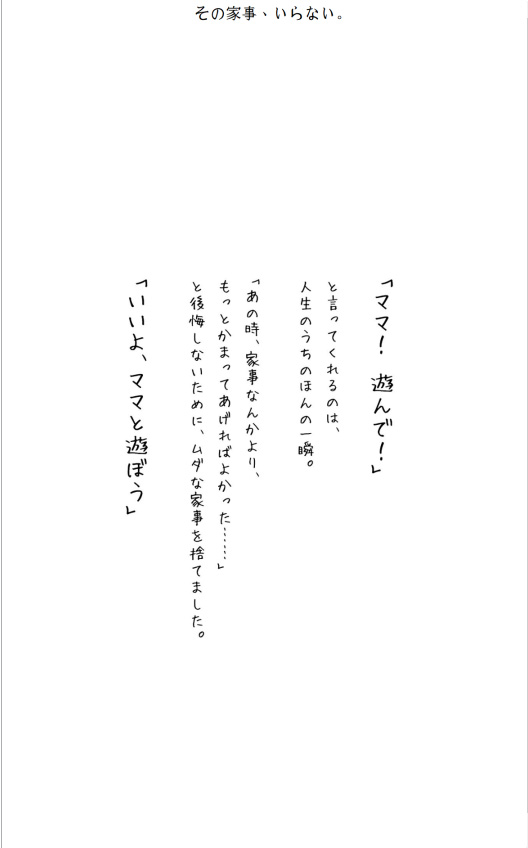 その家事、いらない。
「ママ！　遊んで！」
と言ってくれるのは、
人生のうちのほんの一瞬。
「あの時、家事なんかより、
もっとかまってあげればよかった……」
と後悔しないために、ムダな家事を捨てました。
「いいよ、ママと遊ぼう」